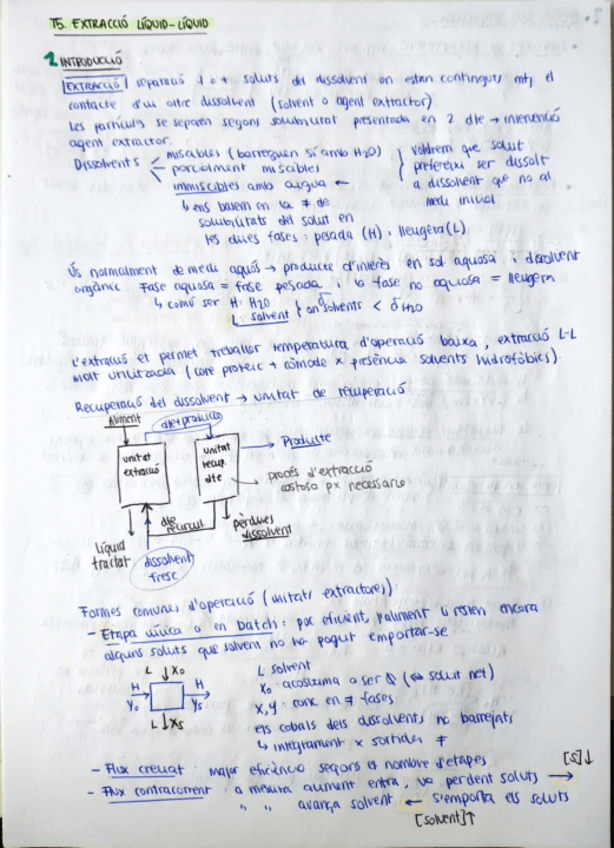 T5. EXTRACCIÓ LÍQUID-LÍQUID
1 INTRODUCCIÓ
EXTRACCIÓ separació 1 o + soluts del dissolvent on estan continguts mtj el
contacte d'un altre dissolvent (solvent o agent extractor).
Les partícules se separen segons solubilitat presentada en 2 dte → intervenció
agent extractor.
Dissolvents miscibles (barregen sí amb H2O)
parcialment miscibles
immiscibles amb aigua
voldrem que solut
prefereixi ser dissolt
a dissolvent que no al
medi inicial
↳ ens basem en la ≠ de
solubilitats del solut en
les dues fases: pesada (H) i lleugera (L)
Ús normalment de medi aquós → producte d'interès en sol aquosa i dissolvent
orgànic. Fase aquosa = fase pesada i la fase no aquosa = lleugera
↳ com ser H: H2O
L: solvent
L'extracció et permet treballar temperatura d'operació baixa, extracció L-L
molt utilitzada (core proteic + còmode x presència solvents hidrofòbics).
Recuperació del dissolvent → unitat de recuperació
Aliment
dte+producte
unitat extracció
unitat recup. dte
→ Producte
→ procés d'extracció
costosa px necessario
dte recircul
pèrdues dissolvent
líquid tractat
dissolvent fresc
Formes comunes d'operació (unitats extractores):
- Etapa única o en batch: poc eficient, l'aliment li resten encara
alguns soluts que solvent no ha pogut emportar-se
L ↓ X0
H
Y0
H
Ys
L ↓ Xs
L: solvent
X0: acostuma a ser 0 (⇔ solut net)
x, y: conc en ≠ fases
els cabals dels dissolvents no barrejats
↳ íntegrament x sortides ≠
- Flux creuat: major eficiència segons el nombre d'etapes
[S]↓
- Flux contracorrent: a mesura aliment entra, va perdent soluts →
" " avança solvent ← s'emporta els soluts
[solvent]↑